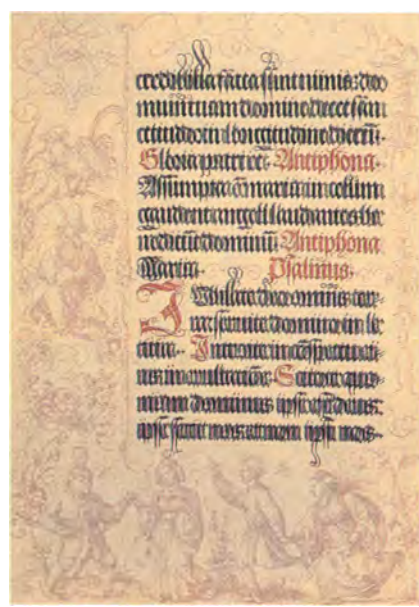 credibilia facta sunt nimis: do
mum tuam domine decet san
ctitudo in longitudine dierū.
Gloria patri et. Antiphona.
Assumpta ē maria in cellum
gaudent angeli laudantes be
nedicūt dominū. Antiphona
Maria. Psalmus.
Iubilate deo omnis ter
ra: servite domino in le
titia. Introite in cōspectu ei
us: in exultatiōe. Scitote quo
niam dominus ipse est deus:
ipse fecit nos et non ipsi nos.